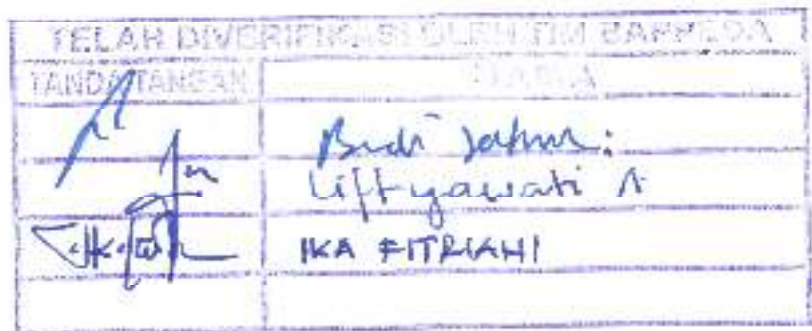 TELAH DIVERIFIKASI OLEH TIM BAPPEDA
TANDA TANGAN NAMA
Budi
Liftyawati A
IKA FITRIANI